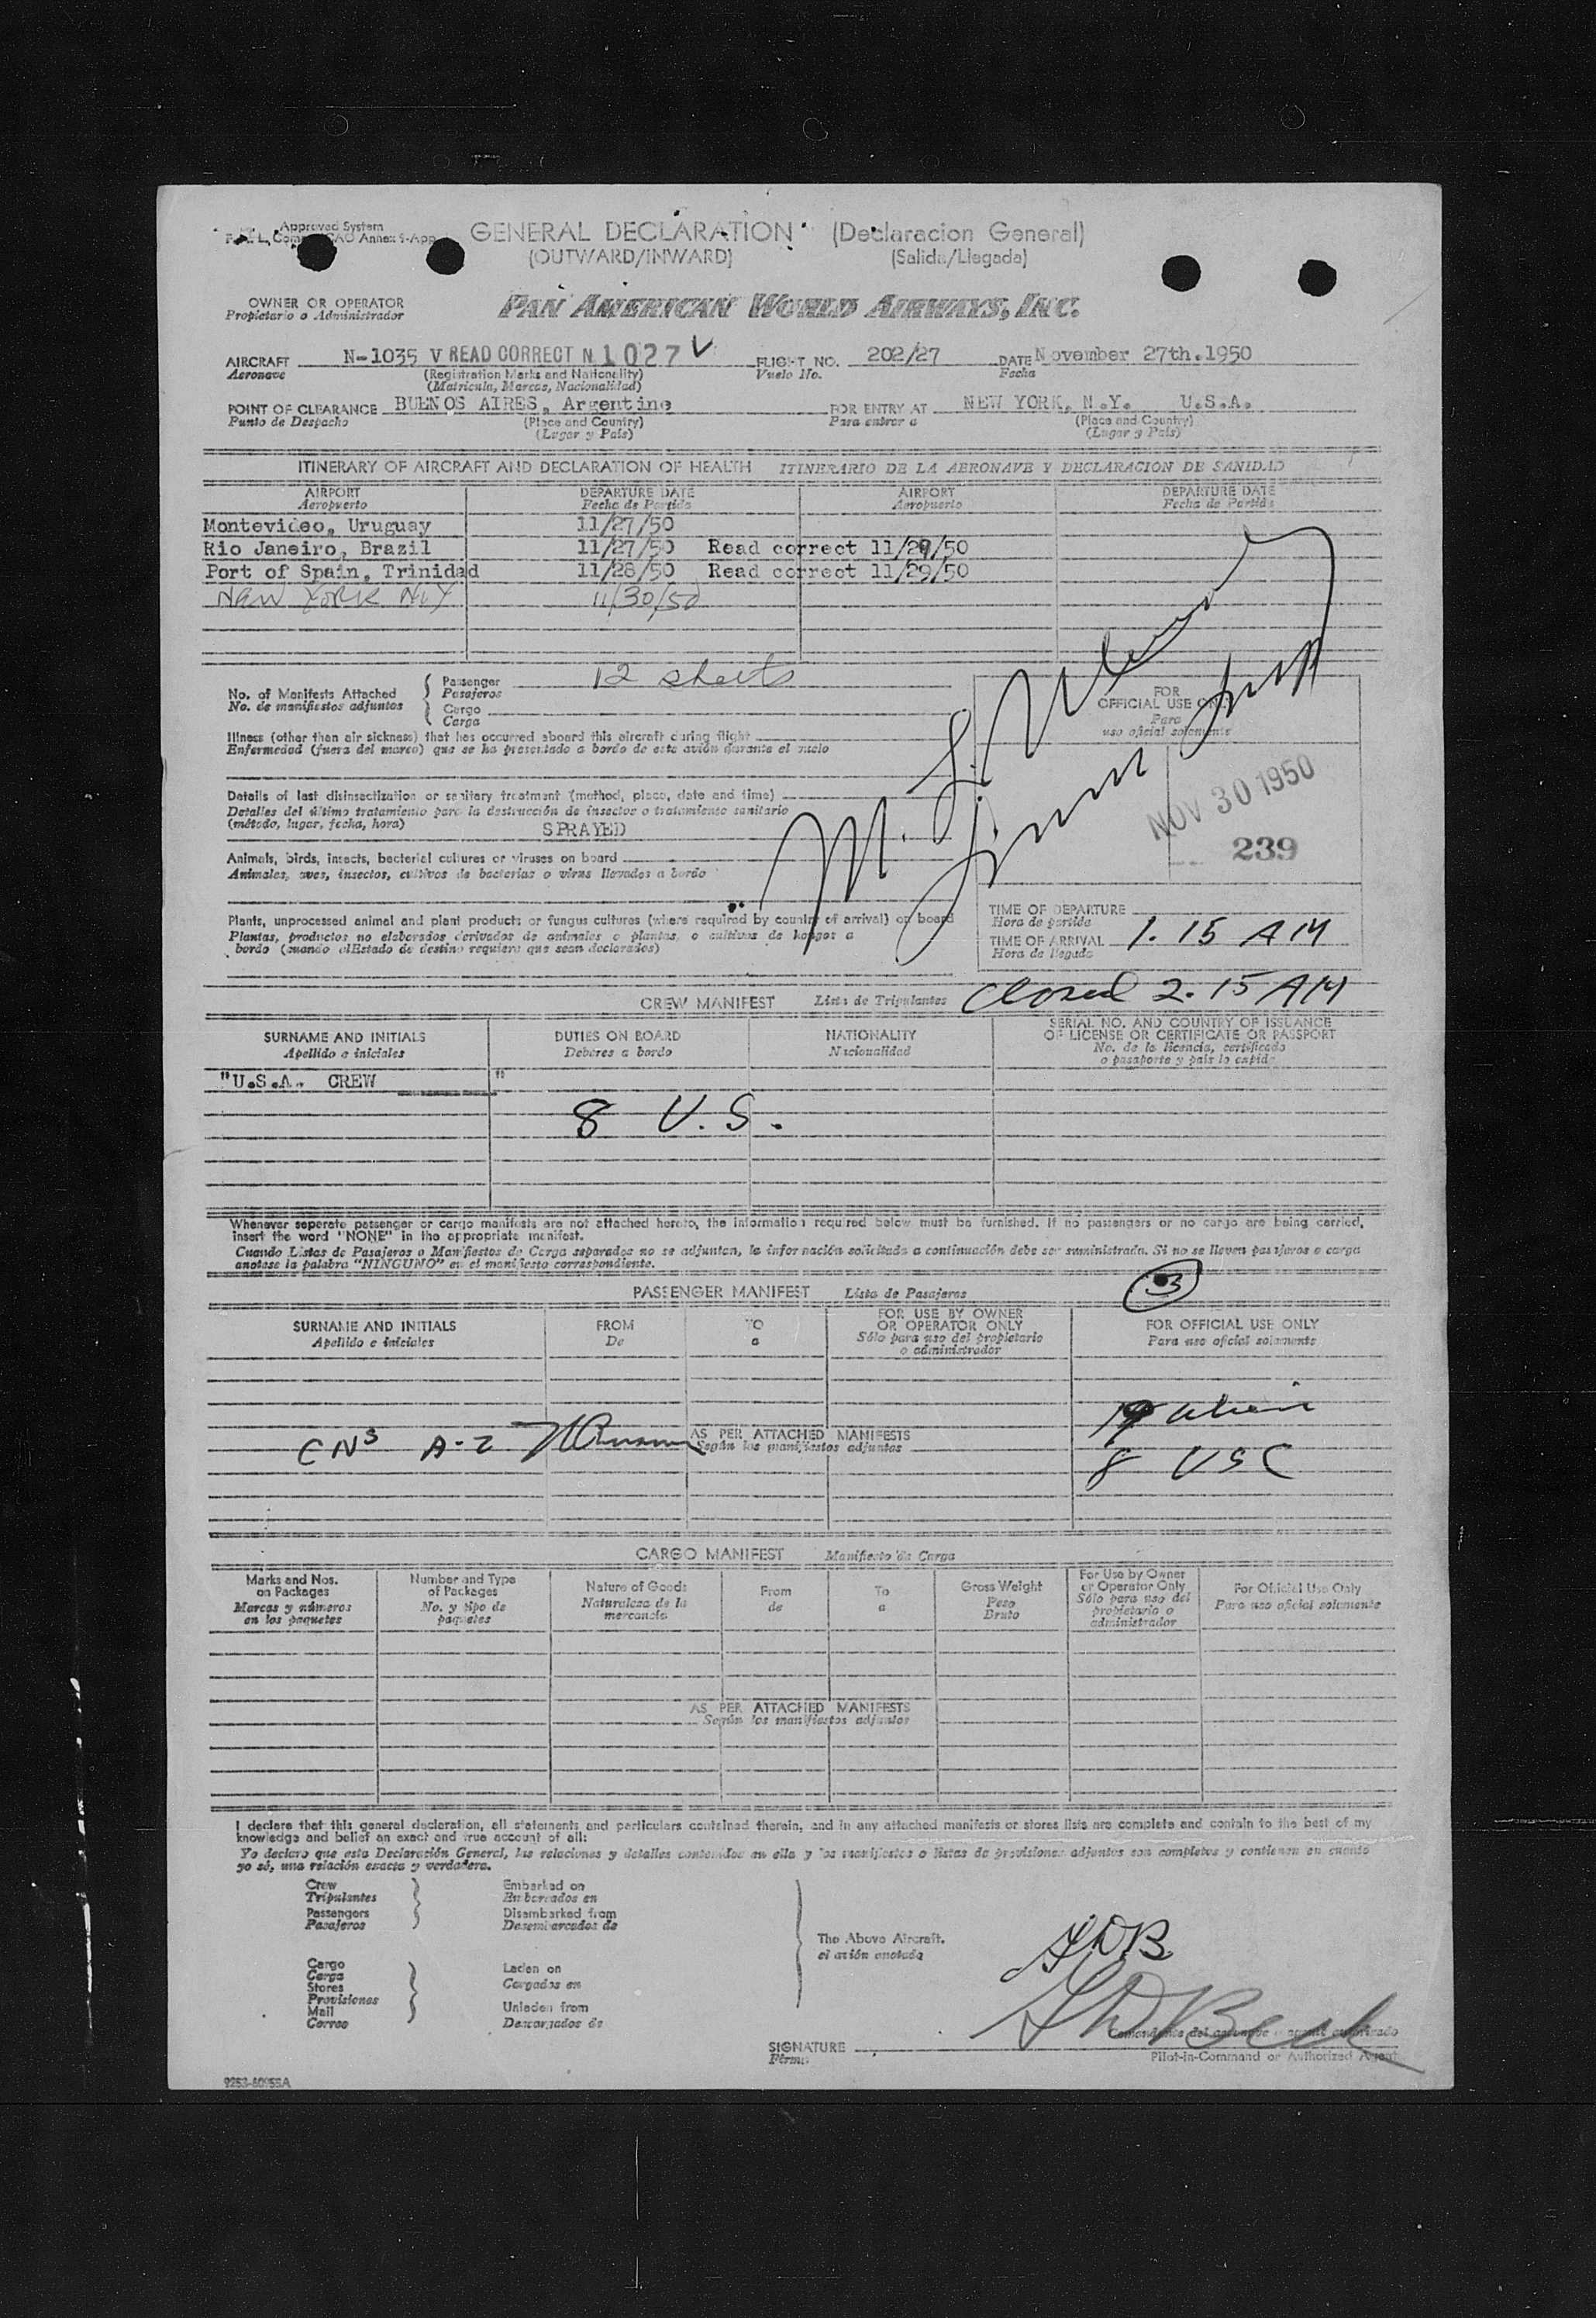 Approved System
GENERAL DECLARATION (Declaracion General)
(OUTWARD/INWARD) (Salida/Llegada)
OWNER OR OPERATOR PAN AMERICAN WORLD AIRWAYS, INC.
Propietario o Administrador
AIRCRAFT N-1035 V READ CORRECT N 1027 V FLIGHT NO. 202/27 DATE November 27th.1950
Aeronave (Registration Marks and Nationality) Vuelo No. Fecha
(Matricula, Marcas, Nacionalidad)
POINT OF CLEARANCE BUENOS AIRES, Argentine FOR ENTRY AT NEW YORK, N.Y. U.S.A.
Punto de Despacho (Place and Country) Para entrar a (Place and Country)
(Lugar y País) (Lugar y País)
ITINERARY OF AIRCRAFT AND DECLARATION OF HEALTH ITINERARIO DE LA AERONAVE Y DECLARACION DE SANIDAD
AIRPORT DEPARTURE DATE AIRPORT DEPARTURE DATE
Aeropuerto Fecha de Partida Aeropuerto Fecha de Partida
Montevideo, Uruguay 11/27/50
Rio Janeiro, Brazil 11/27/50 Read correct 11/29/50
Port of Spain, Trinidad 11/28/50 Read correct 11/29/50
NEW YORK N.Y 11/30/50
12 sheets
No. of Manifests Attached Passenger
No. de manifiestos adjuntos Pasajeros
Cargo
Carga
FOR
OFFICIAL USE ONLY
Para
uso oficial solamente
Illness (other than air sickness) that has occurred aboard this aircraft during flight
Enfermedad (fuera del mareo) que se ha presentado a bordo de este avión durante el vuelo
Details of last disinsectization or sanitary treatment (method, place, date and time)
Detalles del último tratamiento para la destrucción de insectos o tratamiento sanitario
(método, lugar, fecha, hora) SPRAYED
NOV 30 1950
239
Animals, birds, insects, bacterial cultures or viruses on board
Animales, aves, insectos, cultivos de bacterias o virus llevados a bordo
Plants, unprocessed animal and plant products or fungus cultures (where required by country of arrival) on board
Plantas, productos no elaborados derivados de animales o plantas, o cultivos de hongos a
bordo (cuando el Estado de destino requiera que sean declarados)
TIME OF DEPARTURE
Hora de partida
TIME OF ARRIVAL 1.15 AM
Hora de llegada
CREW MANIFEST Lista de Tripulantes Closed 2.15 AM
SURNAME AND INITIALS DUTIES ON BOARD NATIONALITY SERIAL NO. AND COUNTRY OF ISSUANCE
OF LICENSE OR CERTIFICATE OR PASSPORT
Apellido e iniciales Deberes a bordo Nacionalidad No. de la licencia, certificado
o pasaporte y país lo expide
"U.S.A. CREW "
8 U.S.
Whenever seperate passenger or cargo manifests are not attached hereto, the information required below must be furnished. If no passengers or no cargo are being carried,
insert the word "NONE" in the appropriate manifest.
Cuando Listas de Pasajeros o Manifiestos de Carga separados no se adjuntan, la información solicitada a continuación debe ser suministrada. Si no se lleven pasajeros o carga
anotase la palabra "NINGUNO" en el manifiesto correspondiente.
PASSENGER MANIFEST Lista de Pasajeros 3
SURNAME AND INITIALS FROM TO FOR USE BY OWNER OR OPERATOR ONLY FOR OFFICIAL USE ONLY
Apellido e iniciales De a Sólo para uso del propietario o administrador Para uso oficial solamente
19 alien
CNS A-2 AS PER ATTACHED MANIFESTS 8 USC
Según los manifiestos adjuntos
CARGO MANIFEST Manifiesto de Carga
Marks and Nos. on Packages Number and Type of Packages Nature of Goods From To Gross Weight For Use by Owner or Operator Only For Official Use Only
Marcas y números en los paquetes No. y tipo de paquetes Naturaleza de la mercancía de a Peso Bruto Sólo para uso del propietario o administrador Para uso oficial solamente
AS PER ATTACHED MANIFESTS
Según los manifiestos adjuntos
I declare that this general declaration, all statements and particulars contained therein, and in any attached manifests or stores lists are complete and contain to the best of my
knowledge and belief an exact and true account of all:
Yo declaro que esta Declaración General, las relaciones y detalles contenidos en ella y los manifiestos o listas de provisiones adjuntos son completos y contienen en cuanto
yo sé, una relación exacta y verdadera.
Crew Embarked on
Tripulantes Embarcados en
Passengers Disembarked from
Pasajeros Desembarcados de
The Above Aircraft.
el avión anotado
Cargo Laden on
Carga Cargados en
Stores
Provisiones
Mail Unladen from
Correo Descargados de
SIGNATURE
Firma
Comandante del aeronave o agente autorizado
Pilot-in-Command or Authorized Agent
9253-60955A